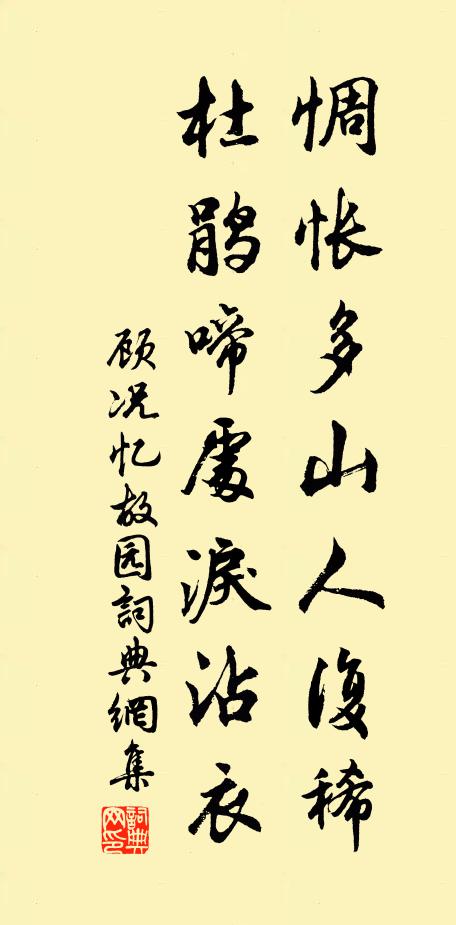 惆怅多山人復稀
杜鹃啼處淚沾衣
顾况忆故园詞典網集
詞典网印